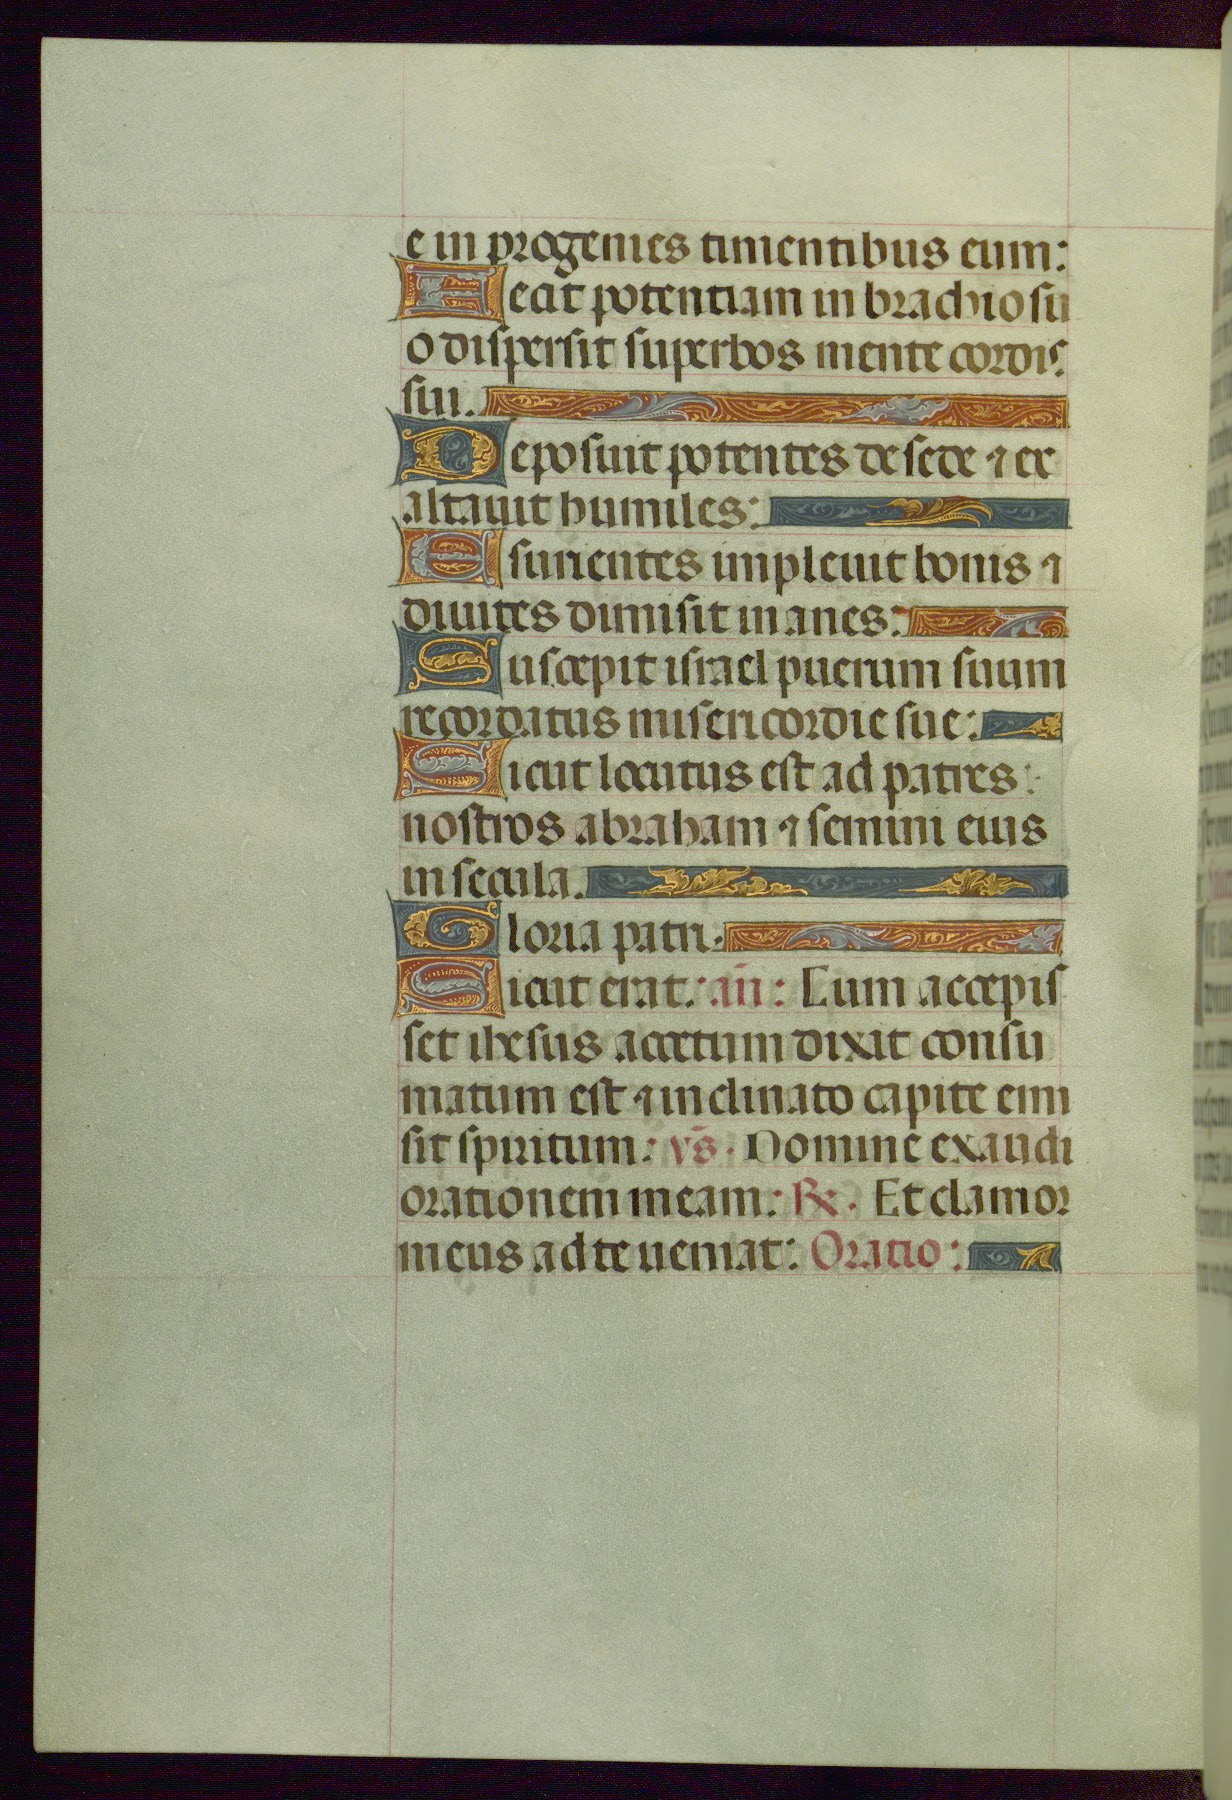 e in progenies timentibus eum:
Fecit potentiam in brachio su
o dispersit superbos mente cordis
sui.
Deposuit potentes de sede ⁊ ex
altauit humiles:
Esurientes impleuit bonis ⁊
diuites dimisit inanes:
Suscepit israel puerum suum
recordatus misericordie sue:
Sicut locutus est ad patres:
nostros abraham ⁊ semini eius
in secula.
Gloria patri.
Sicut erat: añ: Cum accepis
set ihesus accetum dixit consu
matum est ⁊ inclinato capite emi
sit spiritum: v̄s. Domine exaudi
orationem meam: ℞. Et clamor
meus ad te ueniat: Oratio: